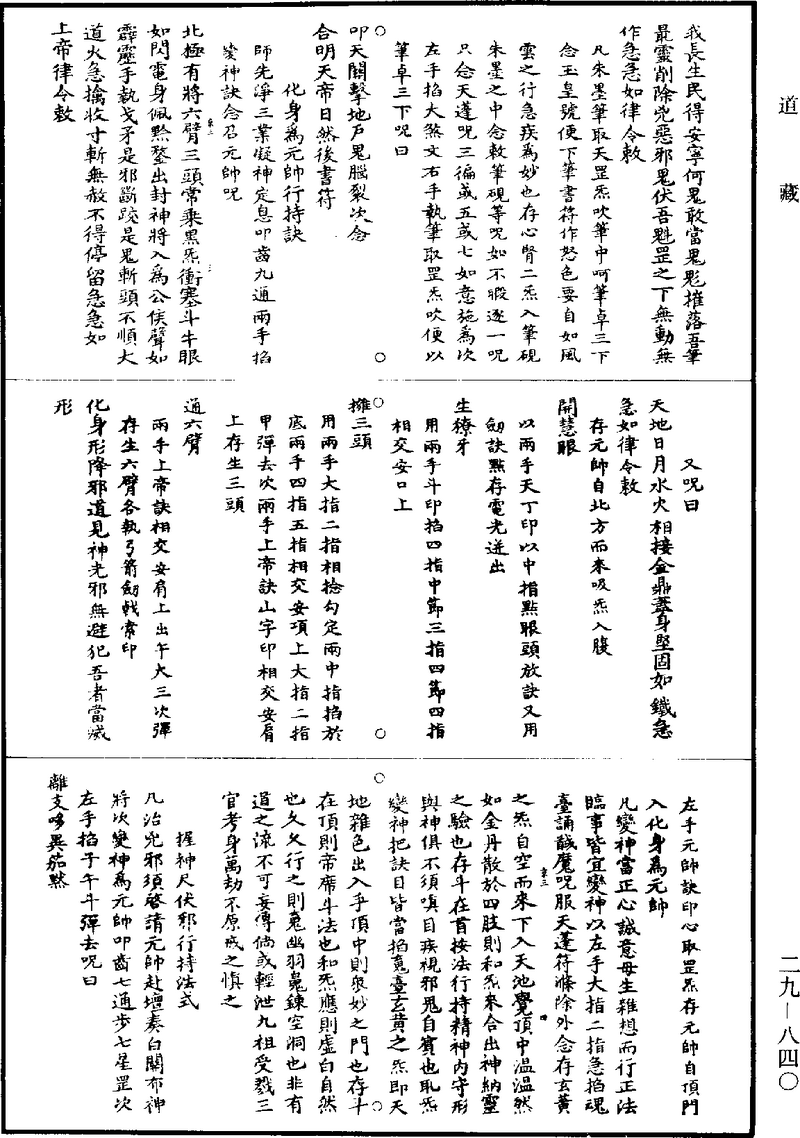 道藏
我長生民得安寧何鬼敢當鬼髟摧落吾筆
最靈削除兇惡邪鬼伏吾魁罡之下無動無
作急急如律令敕
凡朱墨筆取天罡炁吹筆中呵筆卓三下
念玉皇號便下筆書符作怒色要自如風
雲之行急疾為妙也存心腎二炁入筆硯
朱墨之中念敕筆硯等呪如不暇逐一呪
只念天蓬呪三徧或五或七如意施為次
左手掐大煞文右手執筆取罡炁吹便以
筆卓三下呪曰
叩天關擊地戶鬼腦裂次念
合明天帝日然後書符
化身為元帥行持訣
師先淨三業凝神定息叩齒九通兩手掐
變神訣念召元帥呪
北極有將六臂三頭常乘黑炁衝塞斗牛眼
如閃電身佩黲鍪出封神將入為公侯臂如
霹靂手執戈矛是邪斷跤是鬼斬頭不順大
道火急擒收寸斬無赦不得停留急急如
上帝律令敕
又呪曰
天地日月水火相接金鼎蓋身堅固如鐵急
急如律令敕
存元帥自北方而來吸炁入腹
開慧眼
以兩手天丁印以中指點眼頭放訣又用
劍訣點存電光迸出
生獠牙
用兩手斗印掐四指中節三指四節四指
相交安口上
擁三頭
用兩手大指二指相捻勾定兩中指掐於
底兩手四指五指相交安項上大指二指
甲彈去次兩手上帝訣山字印相交安肩
上存生三頭
通六臂
兩手上帝訣相交安肩上出午大三次彈
存生六臂各執弓箭劍戟索印
化身形降邪道見神光邪無避犯吾者當滅
形
左手元帥訣印心取罡炁存元帥自頂門
入化身為元帥
凡變神當正心誠意毋生雜想而行正法
臨事皆宜變神以左手大指二指急掐魂
臺誦馘魔呪服天蓬符滌除外念存玄黃
之炁自空而來下入天池覺頂中溫溫然
如金丹散於四肢則和炁來合出神納靈
之驗也存斗在首按法行持精神內守形
與神俱不須嗔目疾視邪鬼自賓也恥炁
變神把訣目皆當掐魂臺玄黃之炁即天
地雜色出入乎頂中則眾妙之門也存斗
在頂則帝席斗法也和炁應則虛白自然
也久久行之則鬼幽羽鬼鍊空洞也非有
道之流不可妄傳倘或輕泄九祖受戮三
官考身萬劫不原戒之慎之
握神尺伏邪行持法式
凡治兇邪須啟請元帥赴壇奏白關布神
將次變神為元帥叩齒七通步七星罡次
左手掐子午斗彈去呪曰
離支哆異茄黙
二九—八四〇